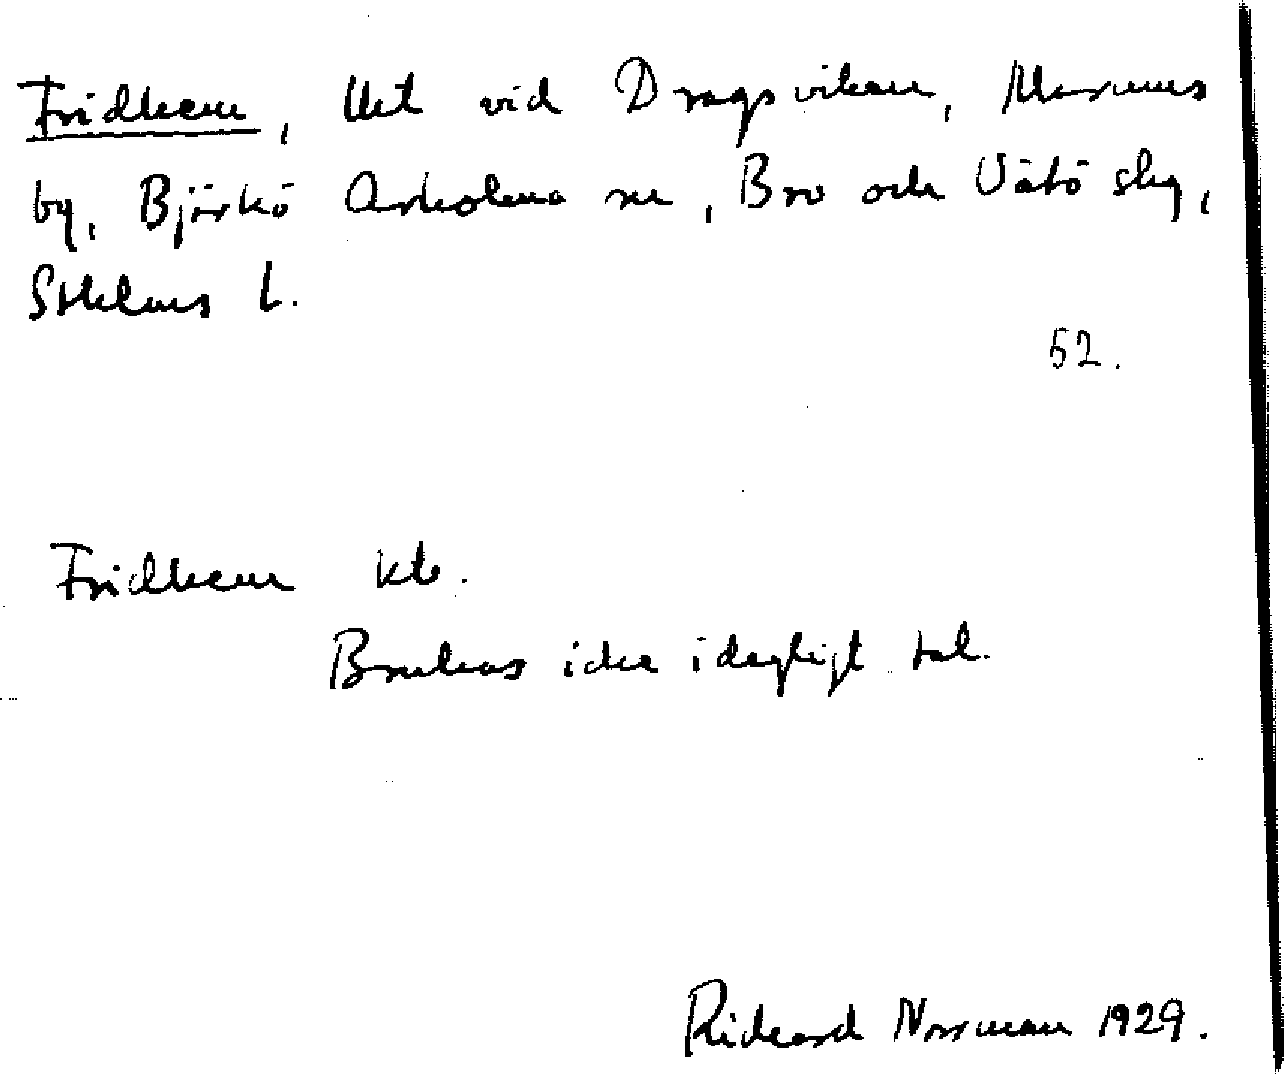 Fridhem, lht vid Dragsviken, Marums
by, Björkö Arholma sn, Bro och Vätö slg,
Sthlms l.
52.
Fridhem
Brukas icke i dagligt tal.
Rickard Norrman 1929.